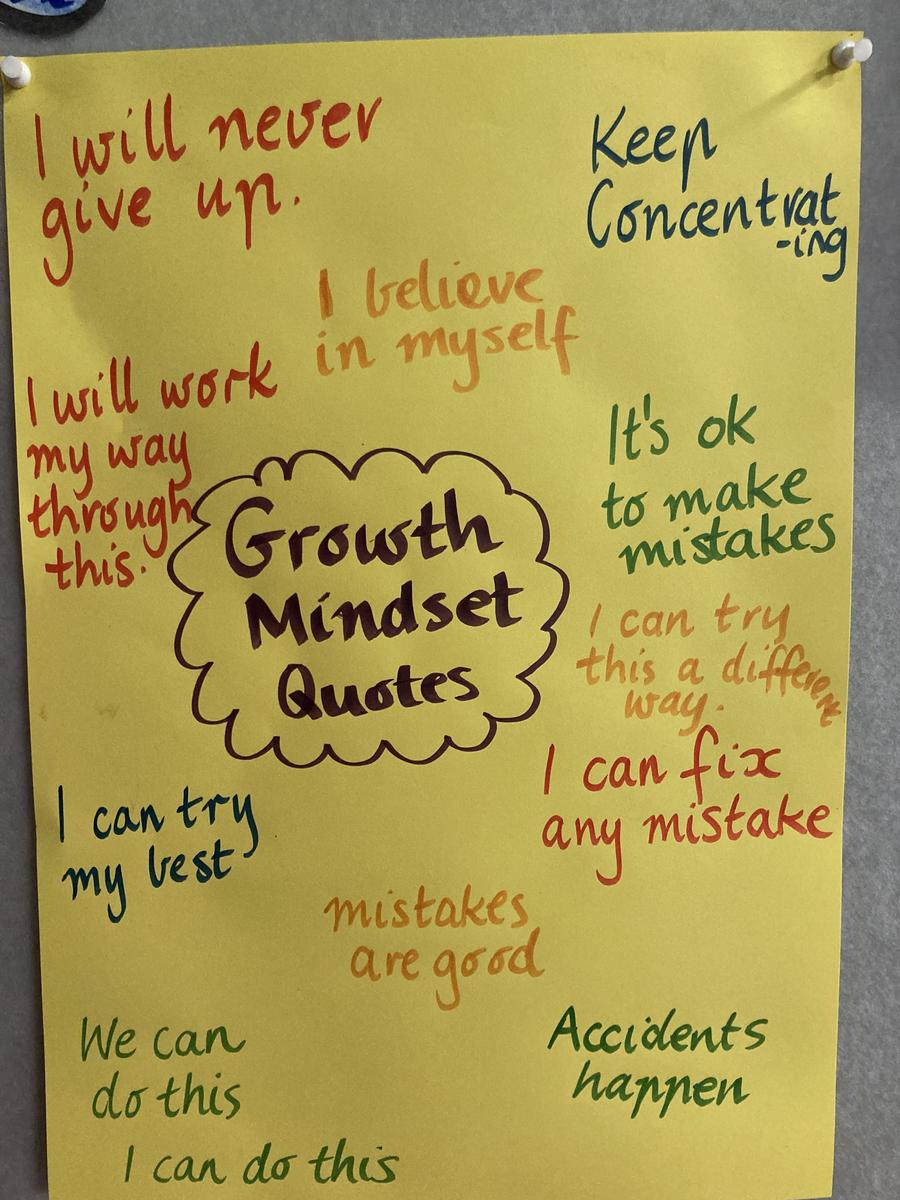 I will never
give up.
Keep
Concentrat
-ing
I believe
in myself
I will work
my way
through
this.
It's ok
to make
mistakes
Growth
Mindset
Quotes
I can try
this a different
way.
I can fix
any mistake
I can try
my best
mistakes
are good
We can
do this
Accidents
happen
I can do this